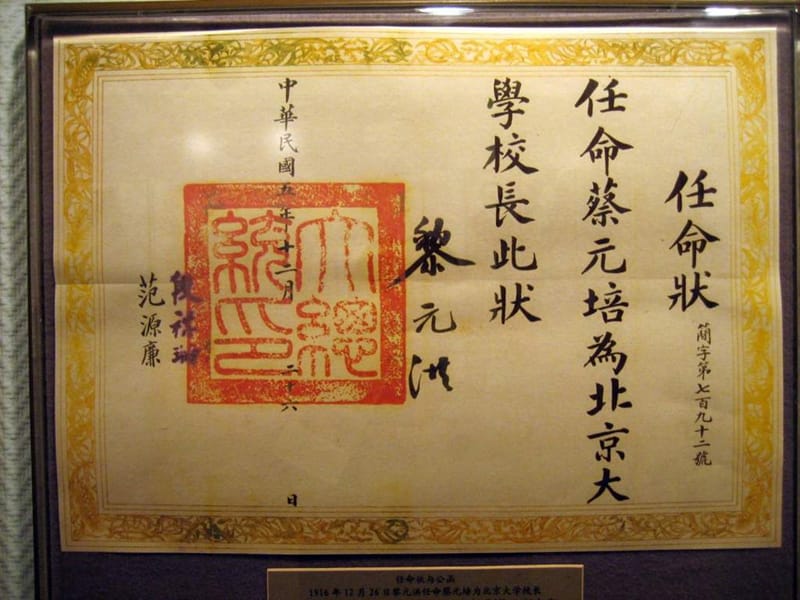 任命狀
簡字第七百九十二號
任命蔡元培為北京大
學校長此狀
黎元洪
大總
統印
中華民國五年十二月二十六日
段祺瑞
范源廉
任命状与公函
1916年12月26日黎元洪任命蔡元培为北京大学校长